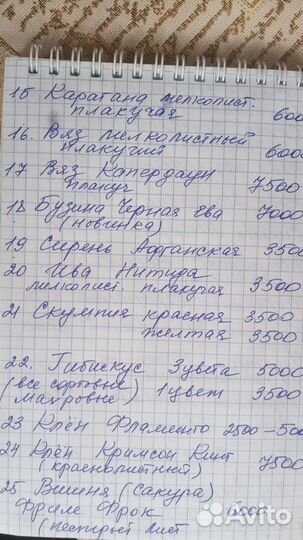 15 Карагана мелколист.
плакучая 600
16. Вяз мелколистный
плакучий 600
17 Вяз Капердаун
плакуч 7500
18 Бузина Черная Ева 7000
(новинка)
19 Сирень Афганская 3500
20 Ива Нитида
мелколист. плакучая 3500
21 Скумпия красная 3500
желтая 3500
22. Гибискус 3цвета 5000
(все сортовые 1цвет 3500
махровые)
23 Клён Фламинго 2500-500
24 Клён Кримсон Кинг
(краснолистный) 7500
25 Вишня (Сакура)
Фрале Фрок 6000
(пестрый лист
Avito